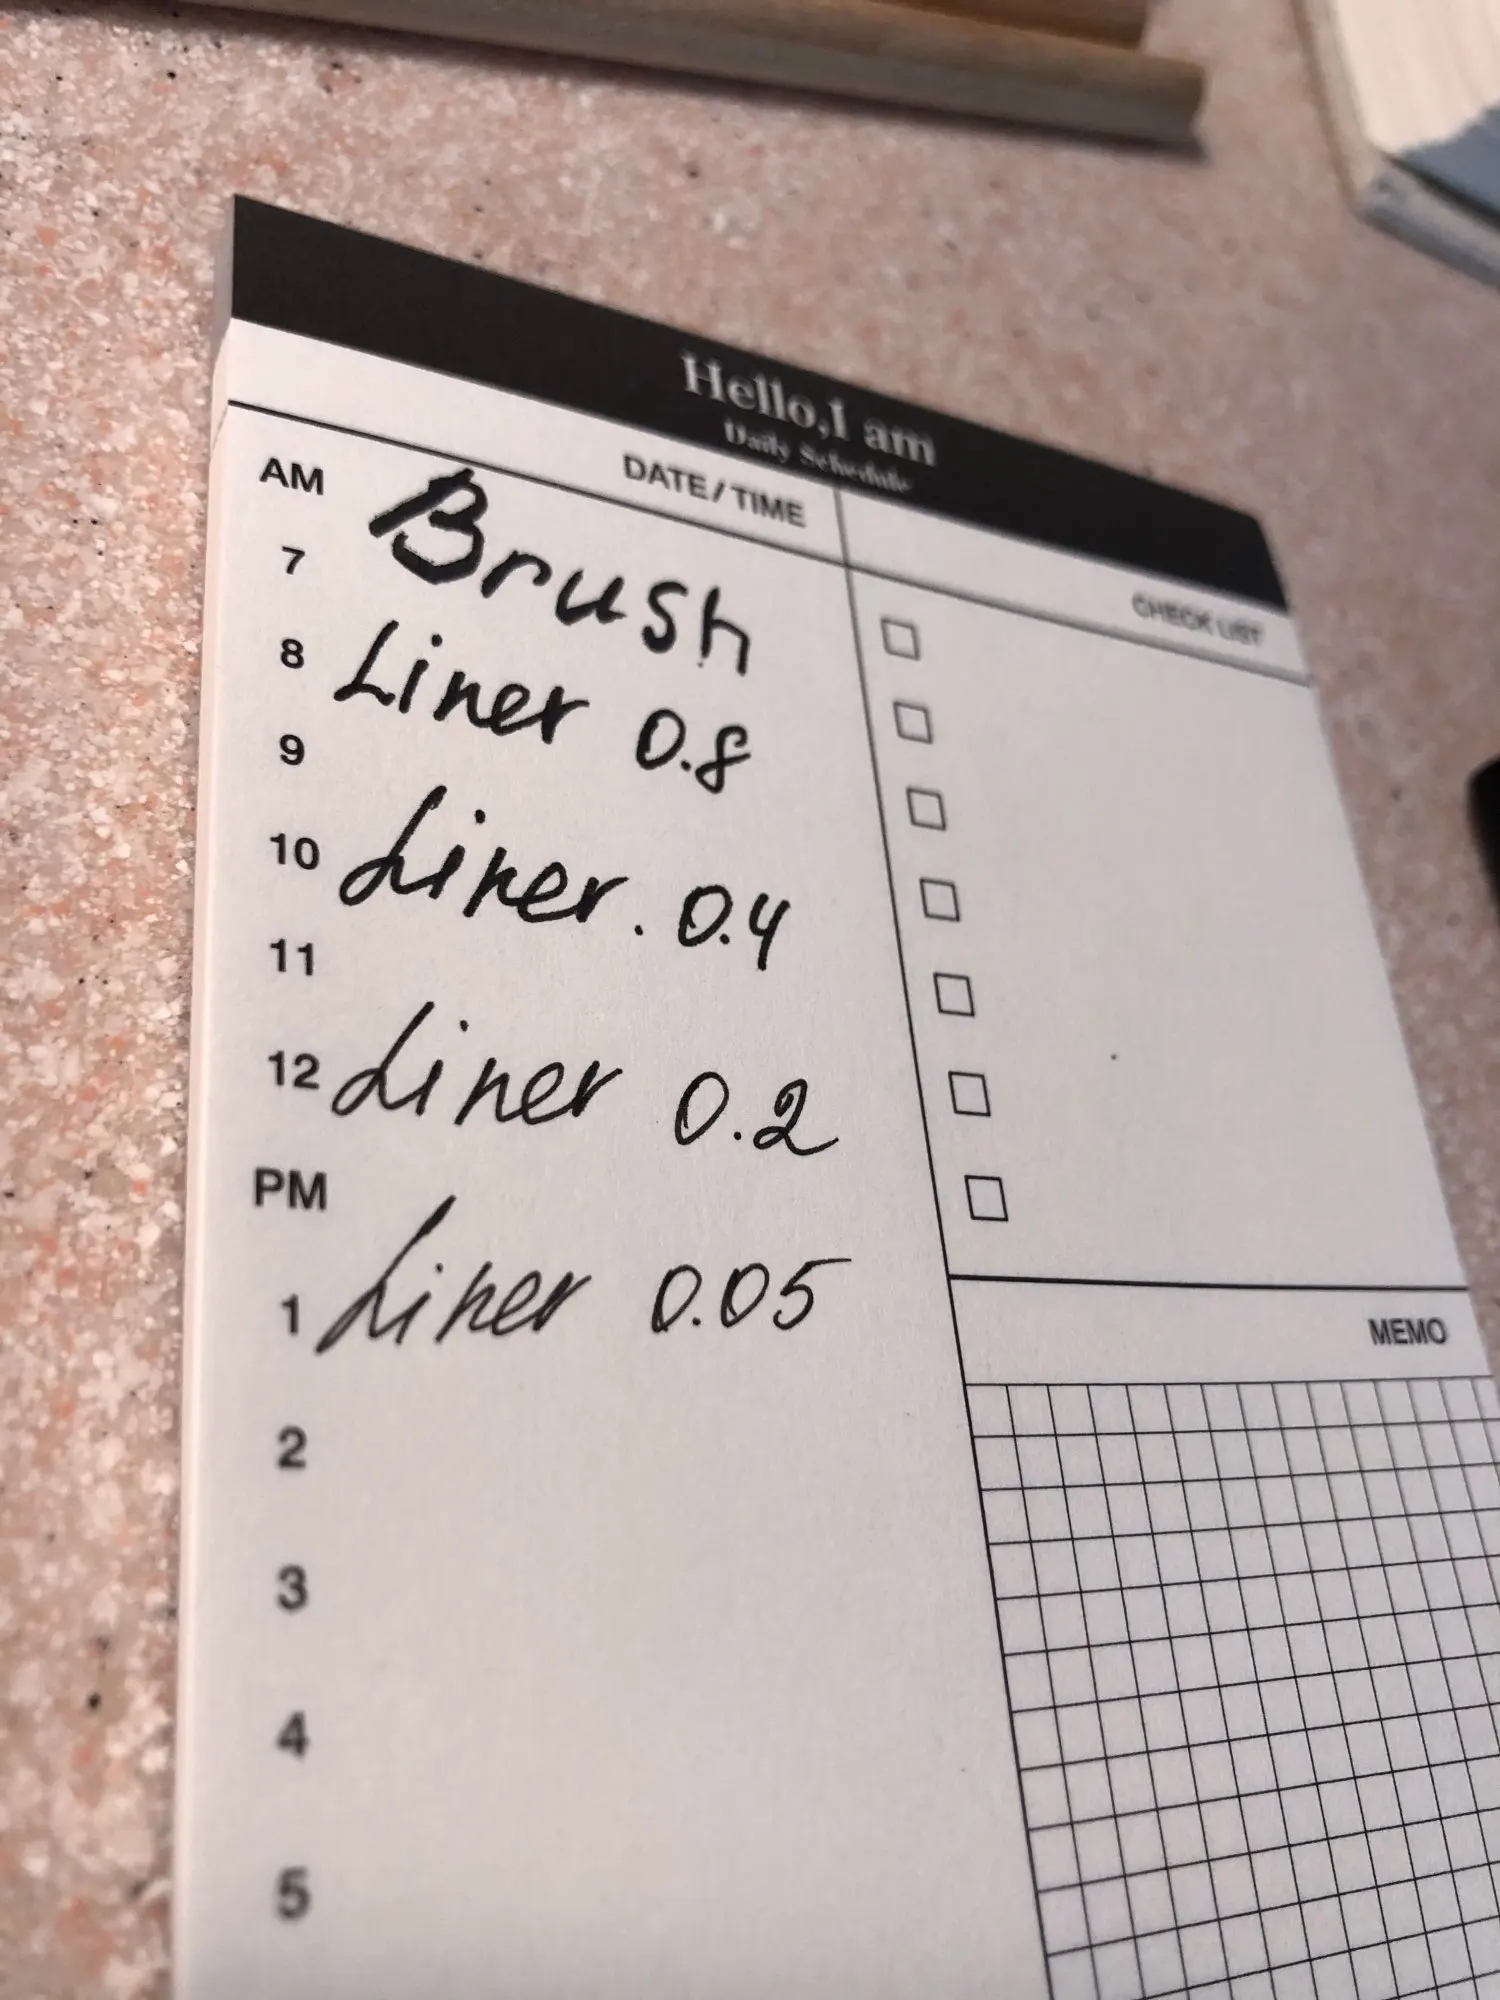 Hello,I am
Daily Schedule
DATE/TIME
CHECK LIST
AM
Brush
7
8 Liner 0.8
9
10 Liner. 0.4
11
12 Liner 0.2
PM
1 Liner 0.05
2
3
4
5
MEMO